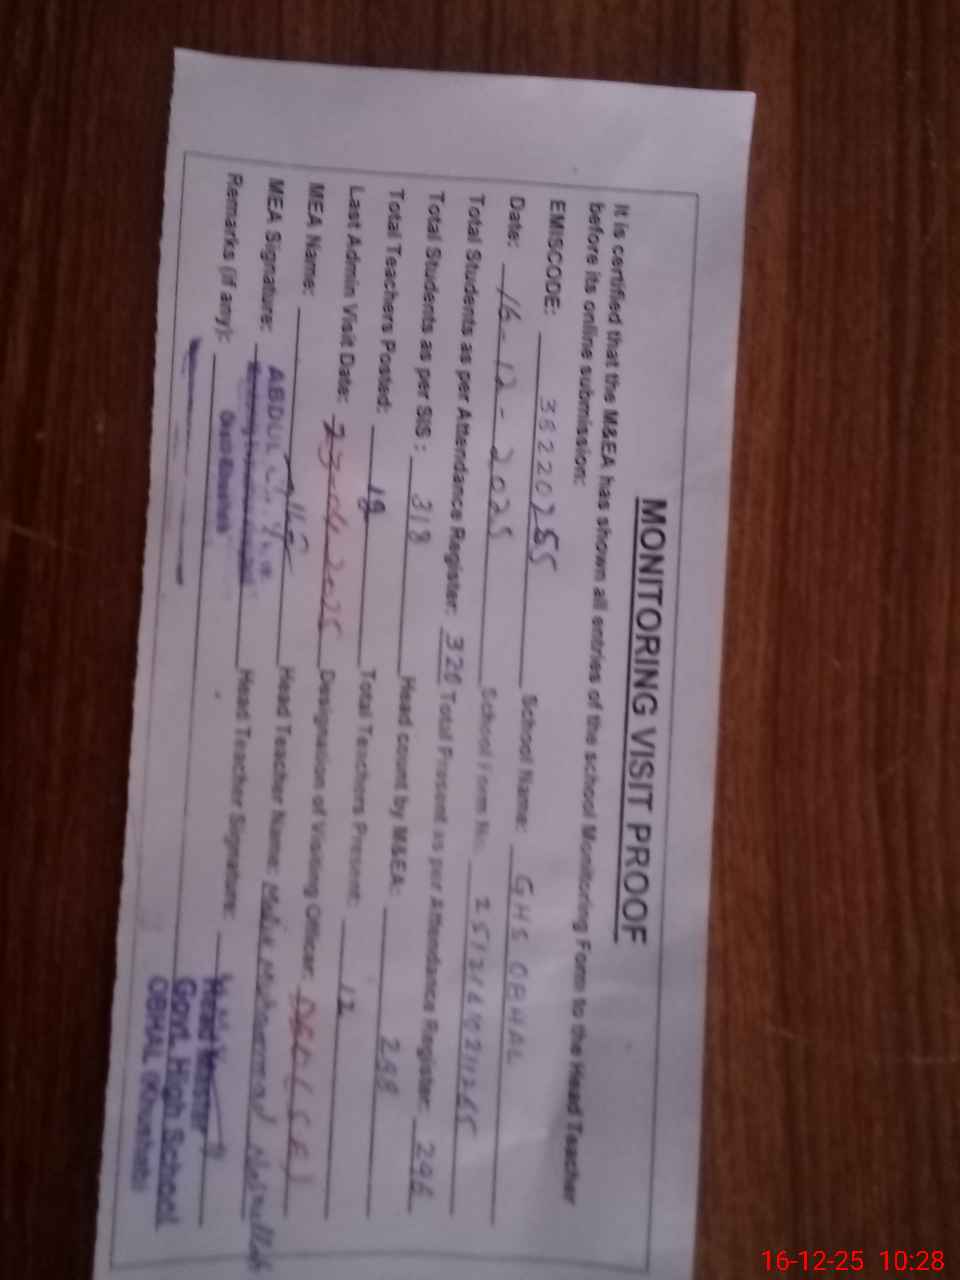 MONITORING VISIT PROOF
It is certified that the M&EA has shown all entries of the school Monitoring Form to the Head Teacher
before its online submission:
EMISCODE: 38220255 School Name: GHS OBHAL
Date: 16-12-2025 School Form No:
Total Students as per Attendance Register: 320 Total Present as per Attendance Register: 296
Total Students as per SIS: 318 Head count by M&EA: 298
Total Teachers Posted: 18 Total Teachers Present: 12
Last Admin Visit Date: 23-04-2025 Designation of Visiting Officer: DEO (SE)
MEA Name: Head Teacher Name: Malik Muhammad
MEA Signature: ABDUL Head Teacher Signature:
Remarks (if any):
Head Master
Govt. High School
OBHAL (Khushab)
16-12-25 10:28